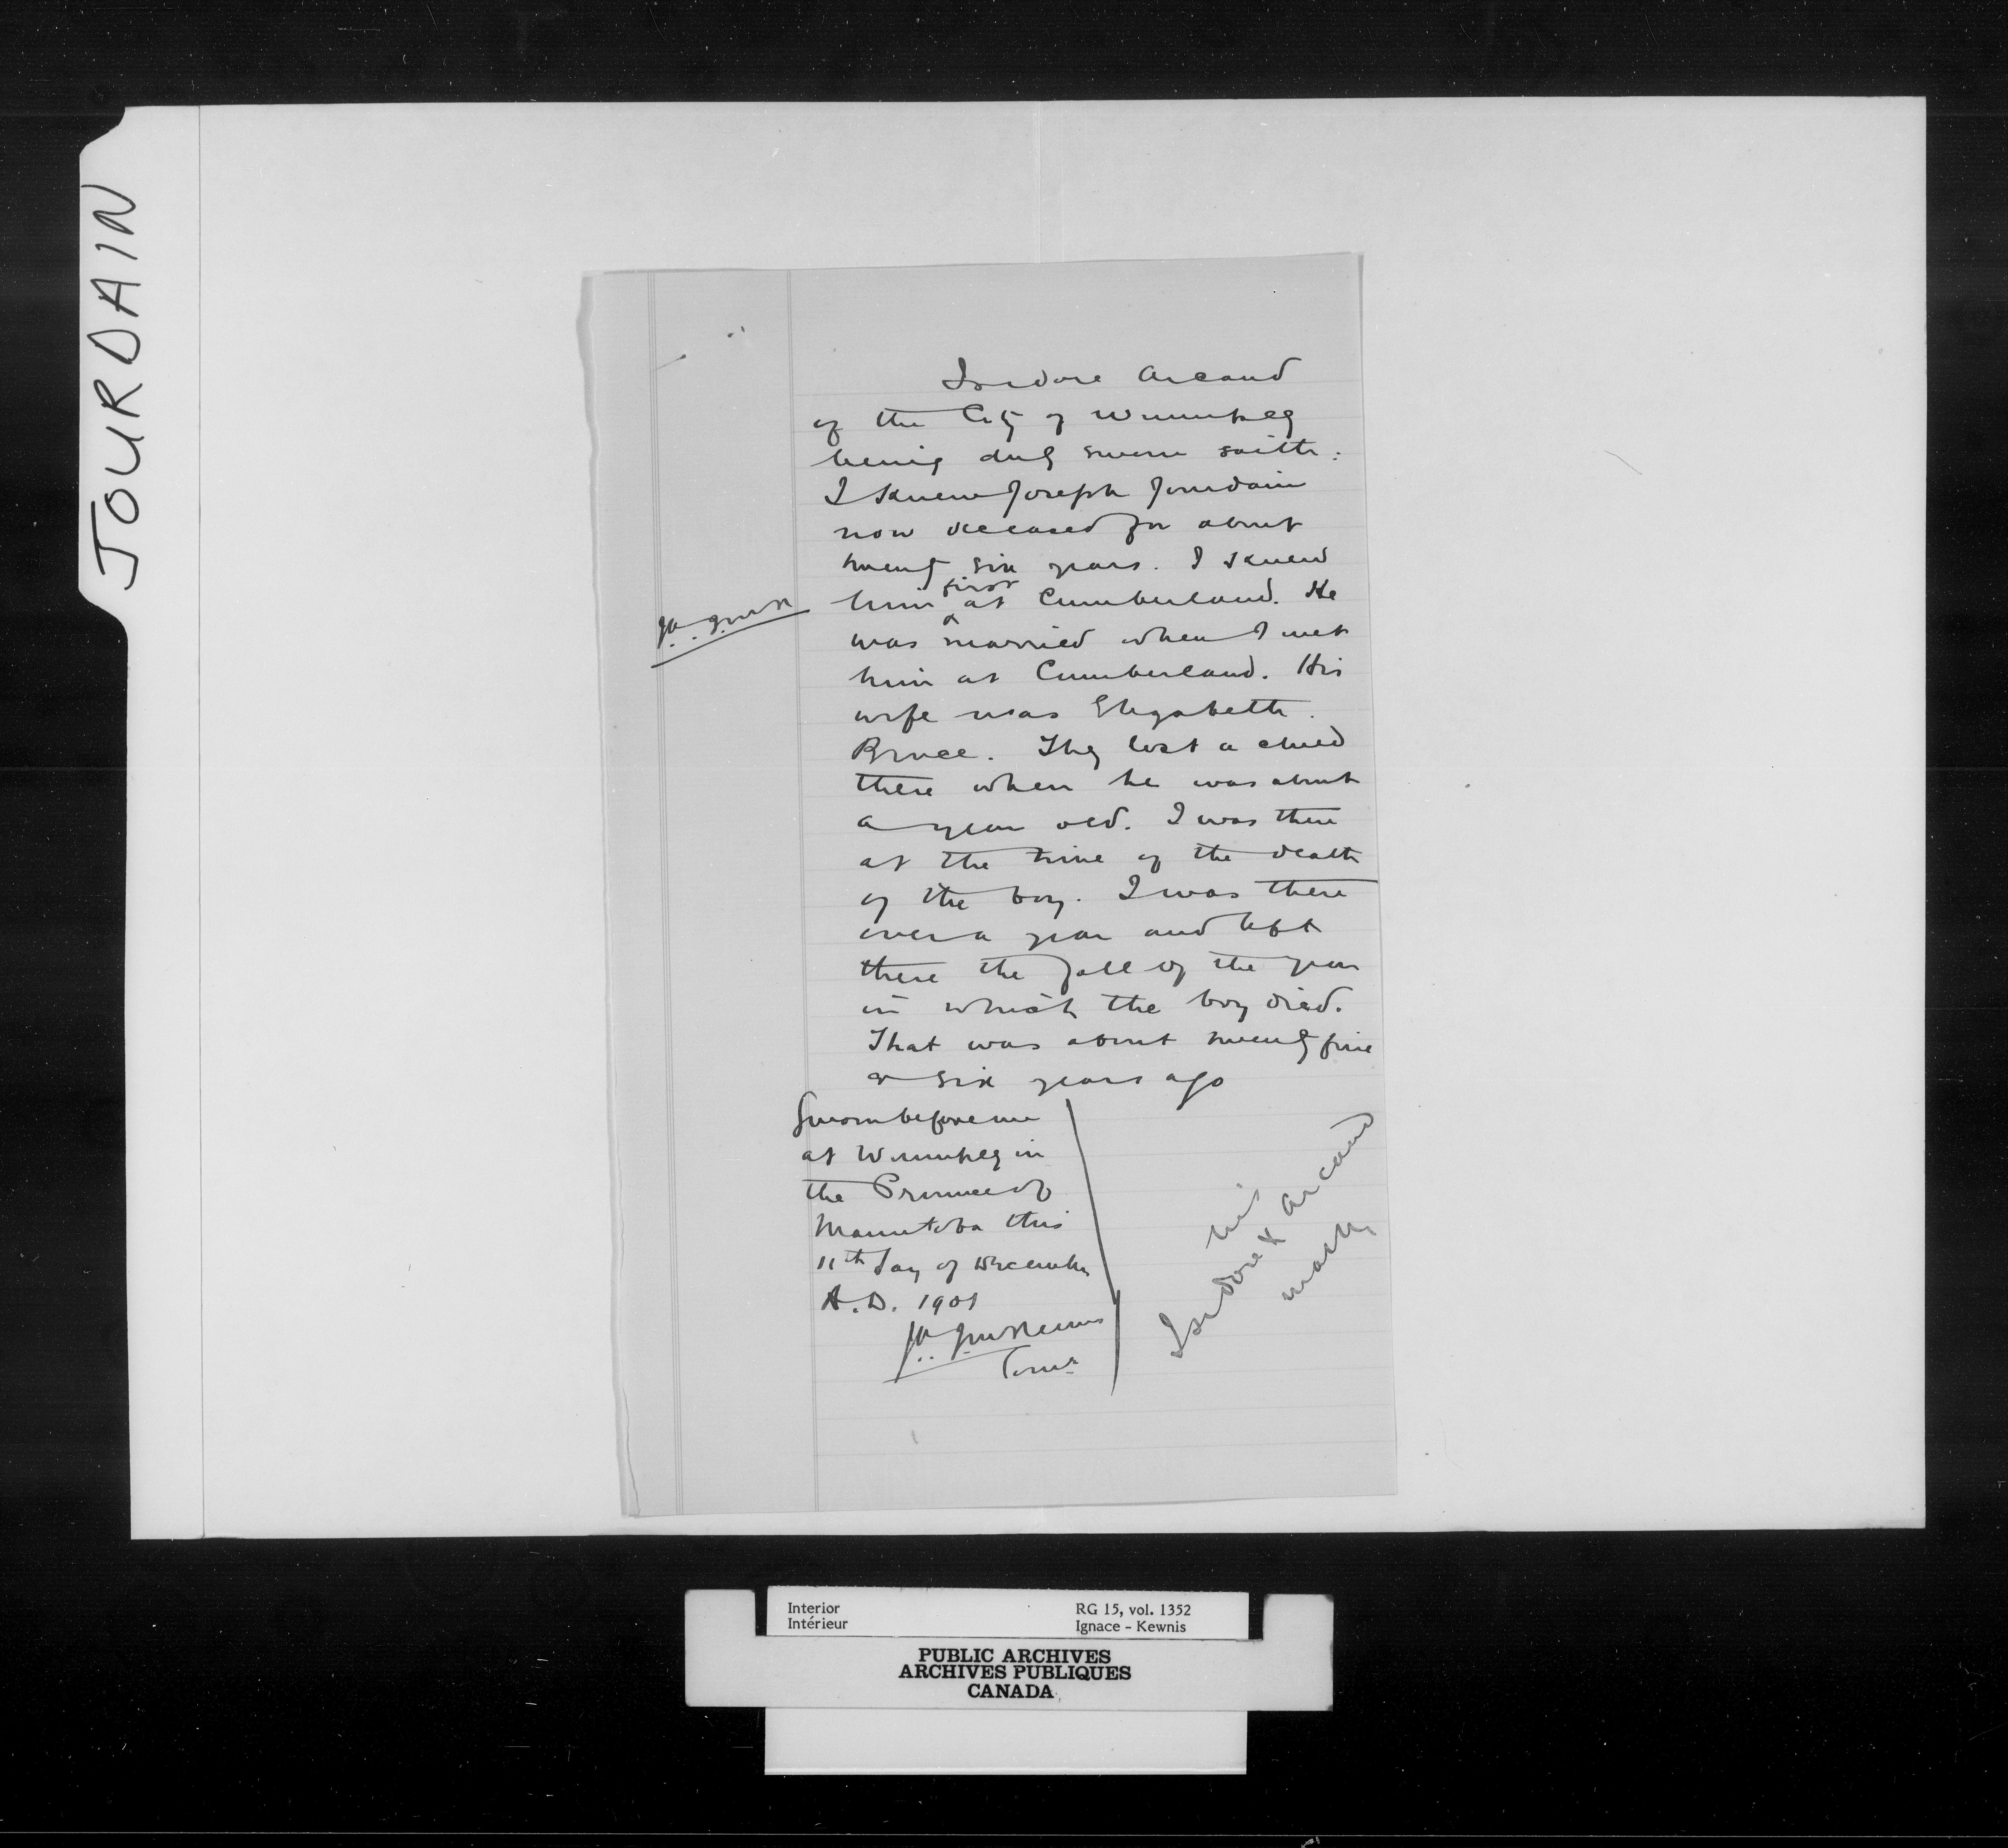 JOURDAIN
Isidore Arcand
of the City of Winnipeg
being duly sworn saith:
I knew Joseph Jourdain
now deceased for about
twenty six years. I knew
first
him at Cumberland. He
was married when I met
him at Cumberland. His
wife was Elizabeth
Bruce. They lost a child
there when he was about
a year old. I was there
at the time of the death
of the boy. I was there
over a year and left
there the fall of the year
in which the boy died.
That was about twenty five
or six years ago
Sworn before me
at Winnipeg in
the Province of
Manitoba this
11th day of December
A.D. 1901
Comr
his
Isidore x Arcand
mark
Interior
Intérieur
RG 15, vol. 1352
Ignace - Kewnis
PUBLIC ARCHIVES
ARCHIVES PUBLIQUES
CANADA